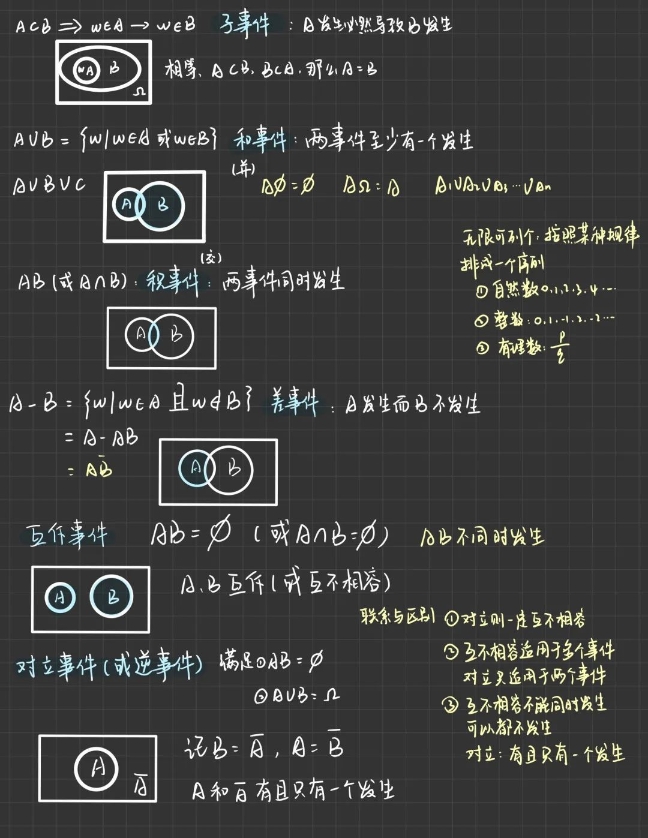 A⊂B ⟹ w∈A → w∈B 子事件：A发生必然导致B发生
wA B Ω
相等、A⊂B，B⊂A，那么A=B
A∪B = {w|w∈A 或w∈B} 和事件：两事件至少有一个发生
(并)
A∪B∪C
A B
A∅=∅ AΩ=A A₁∪A₂∪A₃…∪Aₙ
无限可列个：按照某种规律
排成一个序列
① 自然数0,1,2,3,4…
② 整数：0,1,-1,2,-2…
③ 有理数：p/q
(交)
AB (或A∩B)：积事件：两事件同时发生
A B
A-B = {w|w∈A 且w∉B} 差事件：A发生而B不发生
= A-AB
= AB̄
A B
互斥事件 AB=∅ (或A∩B=∅) AB不同时发生
A B
A、B互斥(或互不相容)
联系与区别 ①对立则一定互不相容
②互不相容适用于多个事件
对立只适用于两个事件
③互不相容不能同时发生
可以都不发生
对立：有且只有一个发生
对立事件(或逆事件) 满足①AB=∅
②A∪B=Ω
A Ā
记B=Ā，A=B̄
A和Ā有且只有一个发生